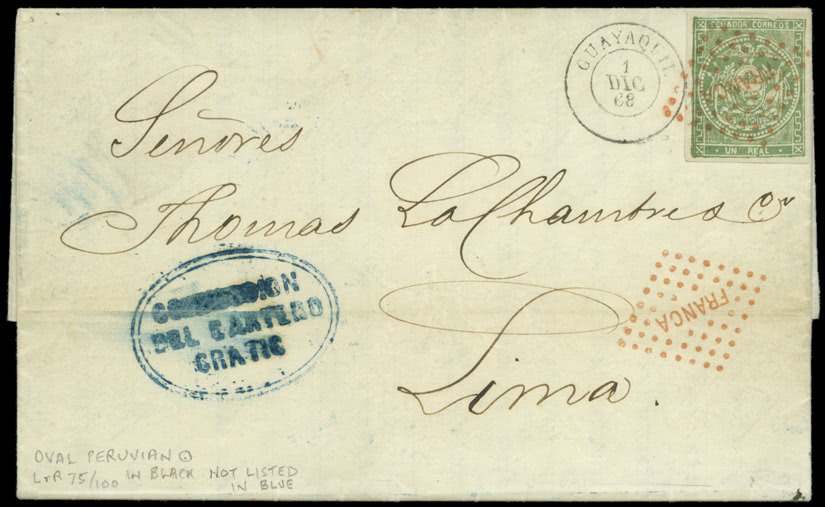 GUAYAQUIL
1
DIC
68
ECUADOR CORREOS
FRANCA
UN REAL
Señores
Thomas LaChambres Co
Lima.
FRANCA
DEL CARTERO
GRATIS
OVAL PERUVIAN
L+R 75/100 IN BLACK NOT LISTED
IN BLUE